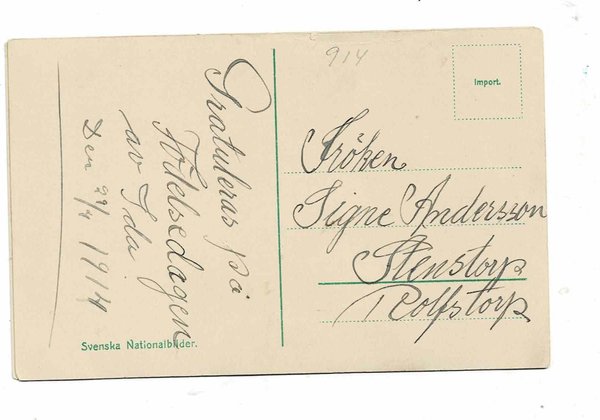 Gratuleras på
Födelsedagen
av Ida
Den 29/4 1914
Svenska Nationalbilder.
914
Import.
Fröken
Signe Andersson
Stenstorp
Rolfstorp